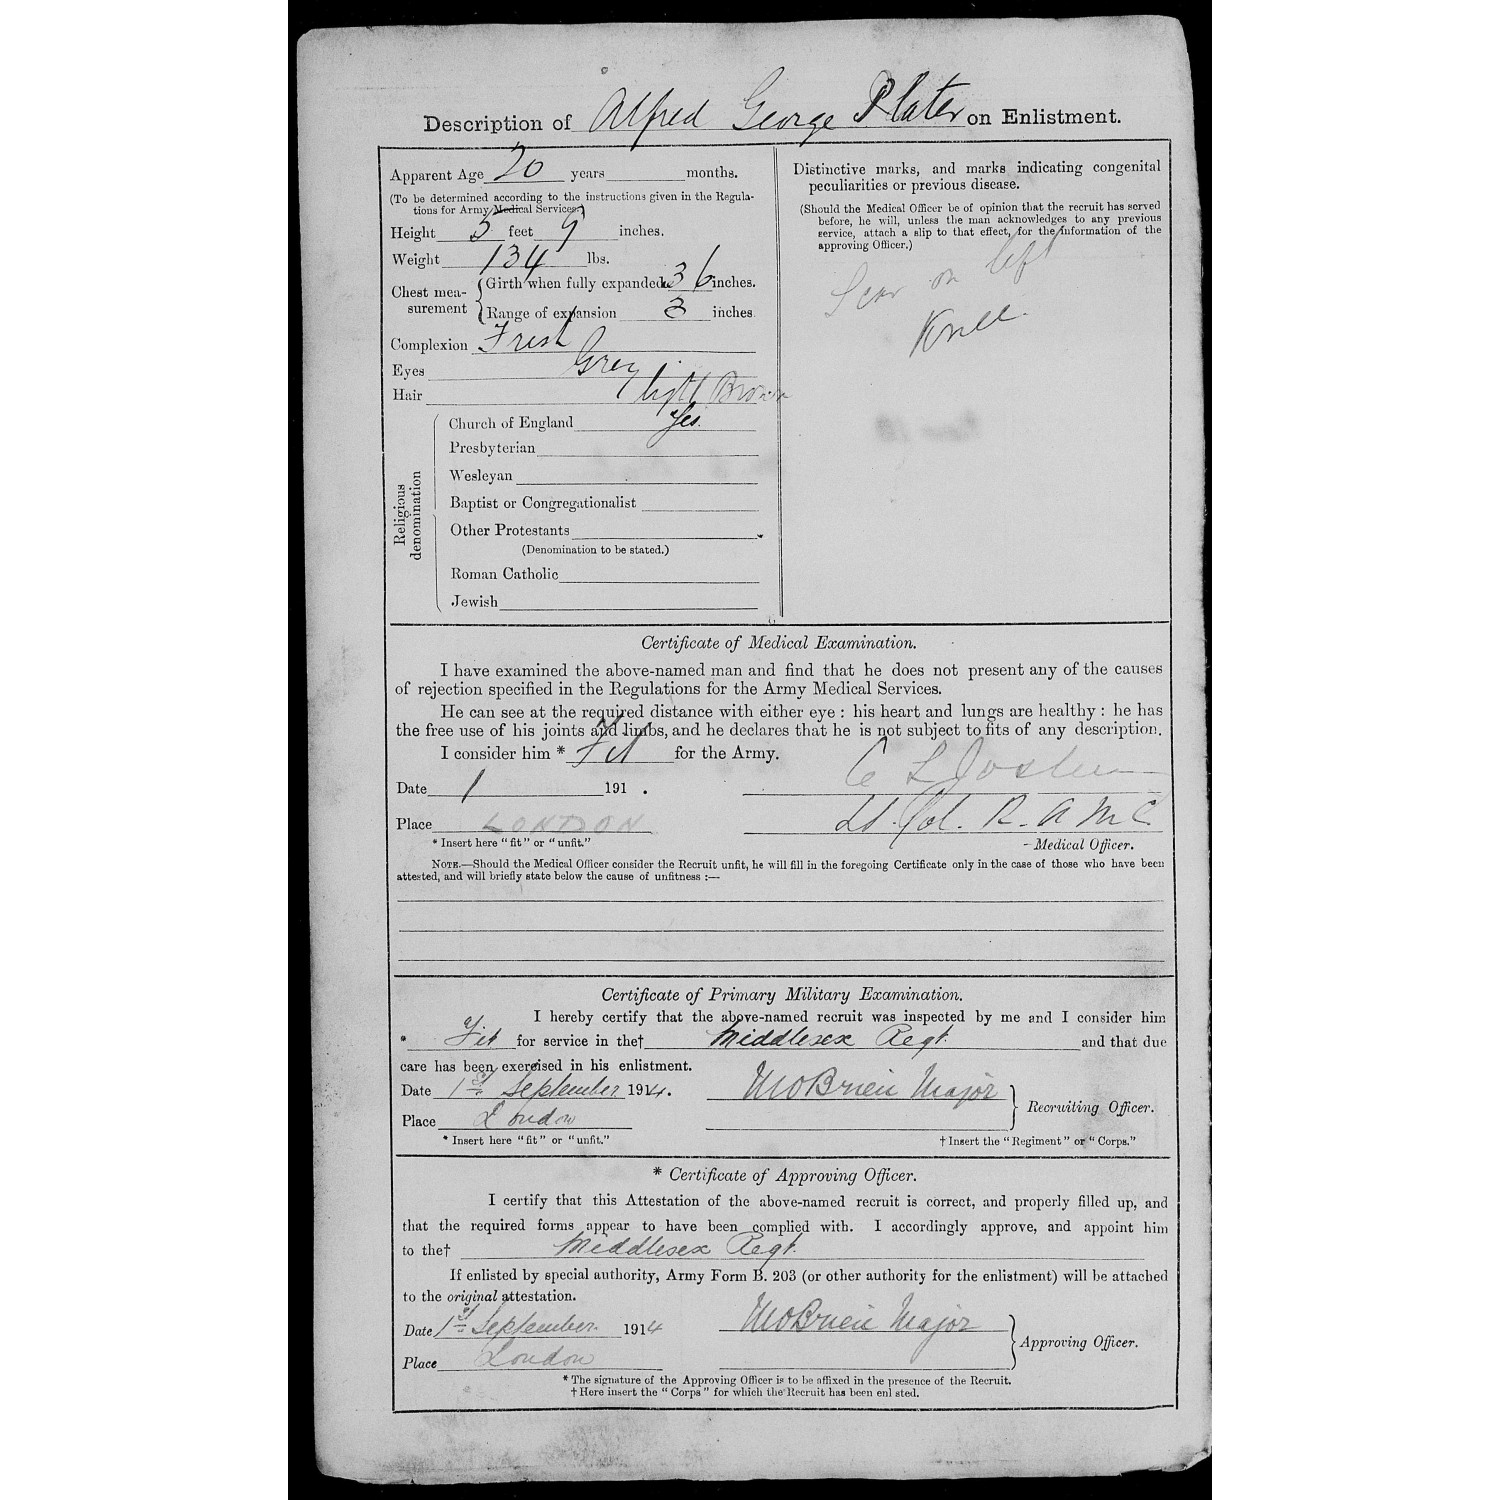 Description of Alfred George Plater on Enlistment.
Apparent Age 20 years months.
(To be determined according to the instructions given in the Regula-
tions for Army Medical Services.)
Height 5 feet 9 inches.
Weight 134 lbs.
Chest mea-
surement
Girth when fully expanded 36 inches.
Range of expansion 3 inches
Complexion Fresh
Eyes Grey
Hair light Brown
Religious
denomination
Church of England Yes.
Presbyterian
Wesleyan
Baptist or Congregationalist
Other Protestants
(Denomination to be stated.)
Roman Catholic
Jewish
Distinctive marks, and marks indicating congenital
peculiarities or previous disease.
(Should the Medical Officer be of opinion that the recruit has served
before, he will, unless the man acknowledges to any previous
service, attach a slip to that effect, for the information of the
approving Officer.)
Scar on left
Knee.
Certificate of Medical Examination.
I have examined the above-named man and find that he does not present any of the causes
of rejection specified in the Regulations for the Army Medical Services.
He can see at the required distance with either eye : his heart and lungs are healthy : he has
the free use of his joints and limbs, and he declares that he is not subject to fits of any description.
I consider him * Fit for the Army.
C L Josling
Date 1 191 .
Lt. Col. R. A M C.
Place LONDON
* Insert here "fit" or "unfit."
Medical Officer.
NOTE.—Should the Medical Officer consider the Recruit unfit, he will fill in the foregoing Certificate only in the case of those who have been
attested, and will briefly state below the cause of unfitness :—
Certificate of Primary Military Examination.
I hereby certify that the above-named recruit was inspected by me and I consider him
* Fit for service in the† Middlesex Regt. and that due
care has been exercised in his enlistment.
Date 1st September 1914.
MOBrien Major
Recruiting Officer.
Place London
* Insert here "fit" or "unfit."
† Insert the "Regiment" or "Corps."
* Certificate of Approving Officer.
I certify that this Attestation of the above-named recruit is correct, and properly filled up, and
that the required forms appear to have been complied with. I accordingly approve, and appoint him
to the† Middlesex Regt.
If enlisted by special authority, Army Form B. 203 (or other authority for the enlistment) will be attached
to the original attestation.
Date 1st September 1914
MOBrien Major
Approving Officer.
Place London
* The signature of the Approving Officer is to be affixed in the presence of the Recruit.
† Here insert the "Corps" for which the Recruit has been enl sted.